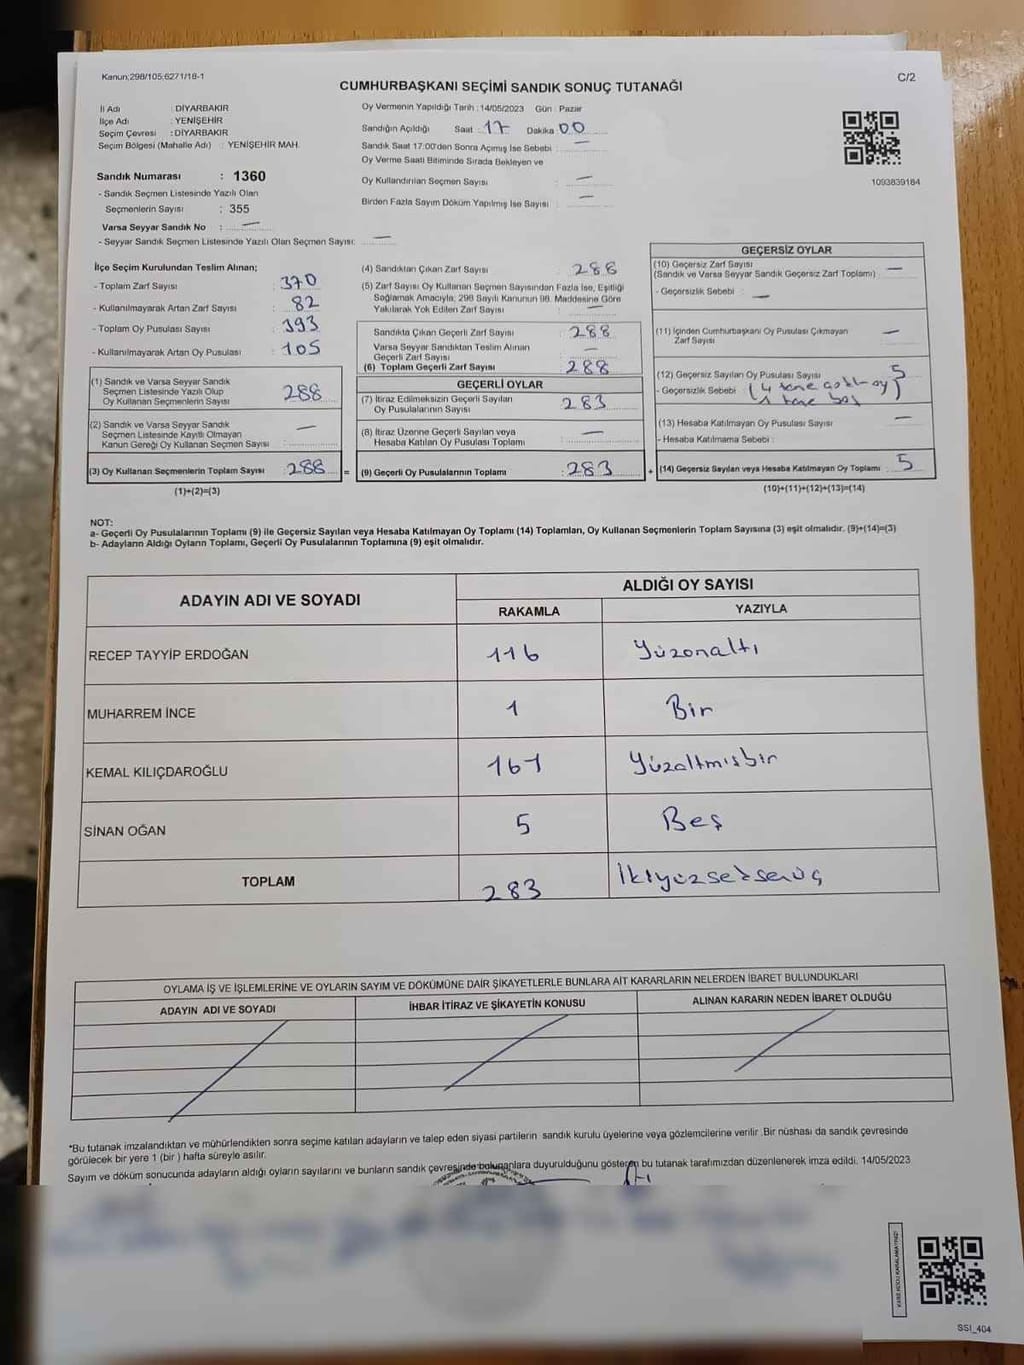 Kanun:298/105;6271/18-1
C/2
CUMHURBAŞKANI SEÇİMİ SANDIK SONUÇ TUTANAĞI
İl Adı : DİYARBAKIR
İlçe Adı : YENİŞEHİR
Seçim Çevresi : DİYARBAKIR
Seçim Bölgesi (Mahalle Adı) : YENİŞEHİR MAH.
Oy Vermenin Yapıldığı Tarih : 14/05/2023 Gün : Pazar
Sandığın Açıldığı Saat : 17 Dakika : 00
Sandık Saat 17:00'den Sonra Açımış İse Sebebi : —
Oy Verme Saati Bitiminde Sırada Bekleyen ve
Oy Kullandırılan Seçmen Sayısı : —
Birden Fazla Sayım Döküm Yapılmış İse Sayısı : —
1093839184
Sandık Numarası : 1360
- Sandık Seçmen Listesinde Yazılı Olan
Seçmenlerin Sayısı : 355
Varsa Seyyar Sandık No : —
- Seyyar Sandık Seçmen Listesinde Yazılı Olan Seçmen Sayısı: —
İlçe Seçim Kurulundan Teslim Alınan;
- Toplam Zarf Sayısı : 370
- Kullanılmayarak Artan Zarf Sayısı : 82
- Toplam Oy Pusulası Sayısı : 393
- Kullanılmayarak Artan Oy Pusulası : 105
(1) Sandık ve Varsa Seyyar Sandık
Seçmen Listesinde Yazılı Olup
Oy Kullanan Seçmenlerin Sayısı : 288
(2) Sandık ve Varsa Seyyar Sandık
Seçmen Listesinde Kayıtlı Olmayan
Kanun Gereği Oy Kullanan Seçmen Sayısı : —
(3) Oy Kullanan Seçmenlerin Toplam Sayısı : 288 =
(1)+(2)=(3)
(4) Sandıktan Çıkan Zarf Sayısı : 288
(5) Zarf Sayısı Oy Kullanan Seçmen Sayısından Fazla İse, Eşitliği
Sağlamak Amacıyla; 298 Sayılı Kanunun 98. Maddesine Göre
Yakılarak Yok Edilen Zarf Sayısı : —
Sandıkta Çıkan Geçerli Zarf Sayısı : 288
Varsa Seyyar Sandıktan Teslim Alınan
Geçerli Zarf Sayısı : —
(6) Toplam Geçerli Zarf Sayısı : 288
GEÇERLİ OYLAR
(7) İtiraz Edilmeksizin Geçerli Sayılan
Oy Pusulalarının Sayısı : 283
(8) İtiraz Üzerine Geçerli Sayılan veya
Hesaba Katılan Oy Pusulası Toplamı : —
(9) Geçerli Oy Pusulalarının Toplamı : 283 +
GEÇERSİZ OYLAR
(10) Geçersiz Zarf Sayısı : —
(Sandık ve Varsa Seyyar Sandık Geçersiz Zarf Toplamı)
- Geçersizlik Sebebi : —
(11) İçinden Cumhurbaşkanı Oy Pusulası Çıkmayan
Zarf Sayısı : —
(12) Geçersiz Sayılan Oy Pusulası Sayısı : 5
- Geçersizlik Sebebi : (4 tane oy)
1 tane boş
(13) Hesaba Katılmayan Oy Pusulası Sayısı : —
- Hesaba Katılmama Sebebi :
(14) Geçersiz Sayılan veya Hesaba Katılmayan Oy Toplamı : 5
(10)+(11)+(12)+(13)=(14)
NOT:
a- Geçerli Oy Pusulalarının Toplamı (9) ile Geçersiz Sayılan veya Hesaba Katılmayan Oy Toplamı (14) Toplamları, Oy Kullanan Seçmenlerin Toplam Sayısına (3) eşit olmalıdır. (9)+(14)=(3)
b- Adayların Aldığı Oyların Toplamı, Geçerli Oy Pusulalarının Toplamına (9) eşit olmalıdır.
ADAYIN ADI VE SOYADI
ALDIĞI OY SAYISI
RAKAMLA YAZIYLA
RECEP TAYYİP ERDOĞAN 116 Yüzonaltı
MUHARREM İNCE 1 Bir
KEMAL KILIÇDAROĞLU 161 Yüzaltmışbir
SİNAN OĞAN 5 Beş
TOPLAM 283 İkiyüzseksenüç
OYLAMA İŞ VE İŞLEMLERİNE VE OYLARIN SAYIM VE DÖKÜMÜNE DAİR ŞİKAYETLERLE BUNLARA AİT KARARLARIN NELERDEN İBARET BULUNDUKLARI
ADAYIN ADI VE SOYADI İHBAR İTİRAZ VE ŞİKAYETİN KONUSU ALINAN KARARIN NEDEN İBARET OLDUĞU
*Bu tutanak imzalandıktan ve mühürlendikten sonra seçime katılan adayların ve talep eden siyasi partilerin sandık kurulu üyelerine veya gözlemcilerine verilir .Bir nüshası da sandık çevresinde
görülecek bir yere 1 (bir ) hafta süreyle asılır.
Sayım ve döküm sonucunda adayların aldığı oyların sayılarını ve bunların sandık çevresinde bulunanlara duyurulduğunu gösteren bu tutanak tarafımızdan düzenlenerek imza edildi. 14/05/2023
SSI_404